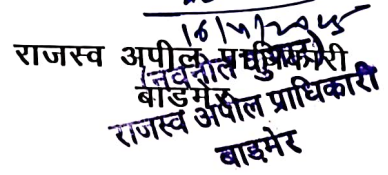 16/4/2025
राजस्व अपील प्राधिकारी
(नवनीत कुमार)
बाडमेर
राजस्व अपील प्राधिकारी
बाड़मेर